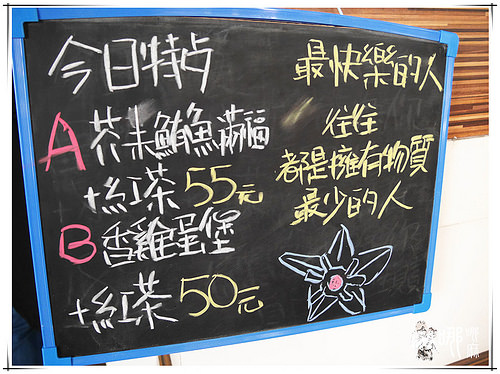 今日特占
A 芥末鮪魚滿福
+紅茶 55元
B 香雞蛋堡
+紅茶 50元
最快樂的人
往往
都是擁有物質
最少的人